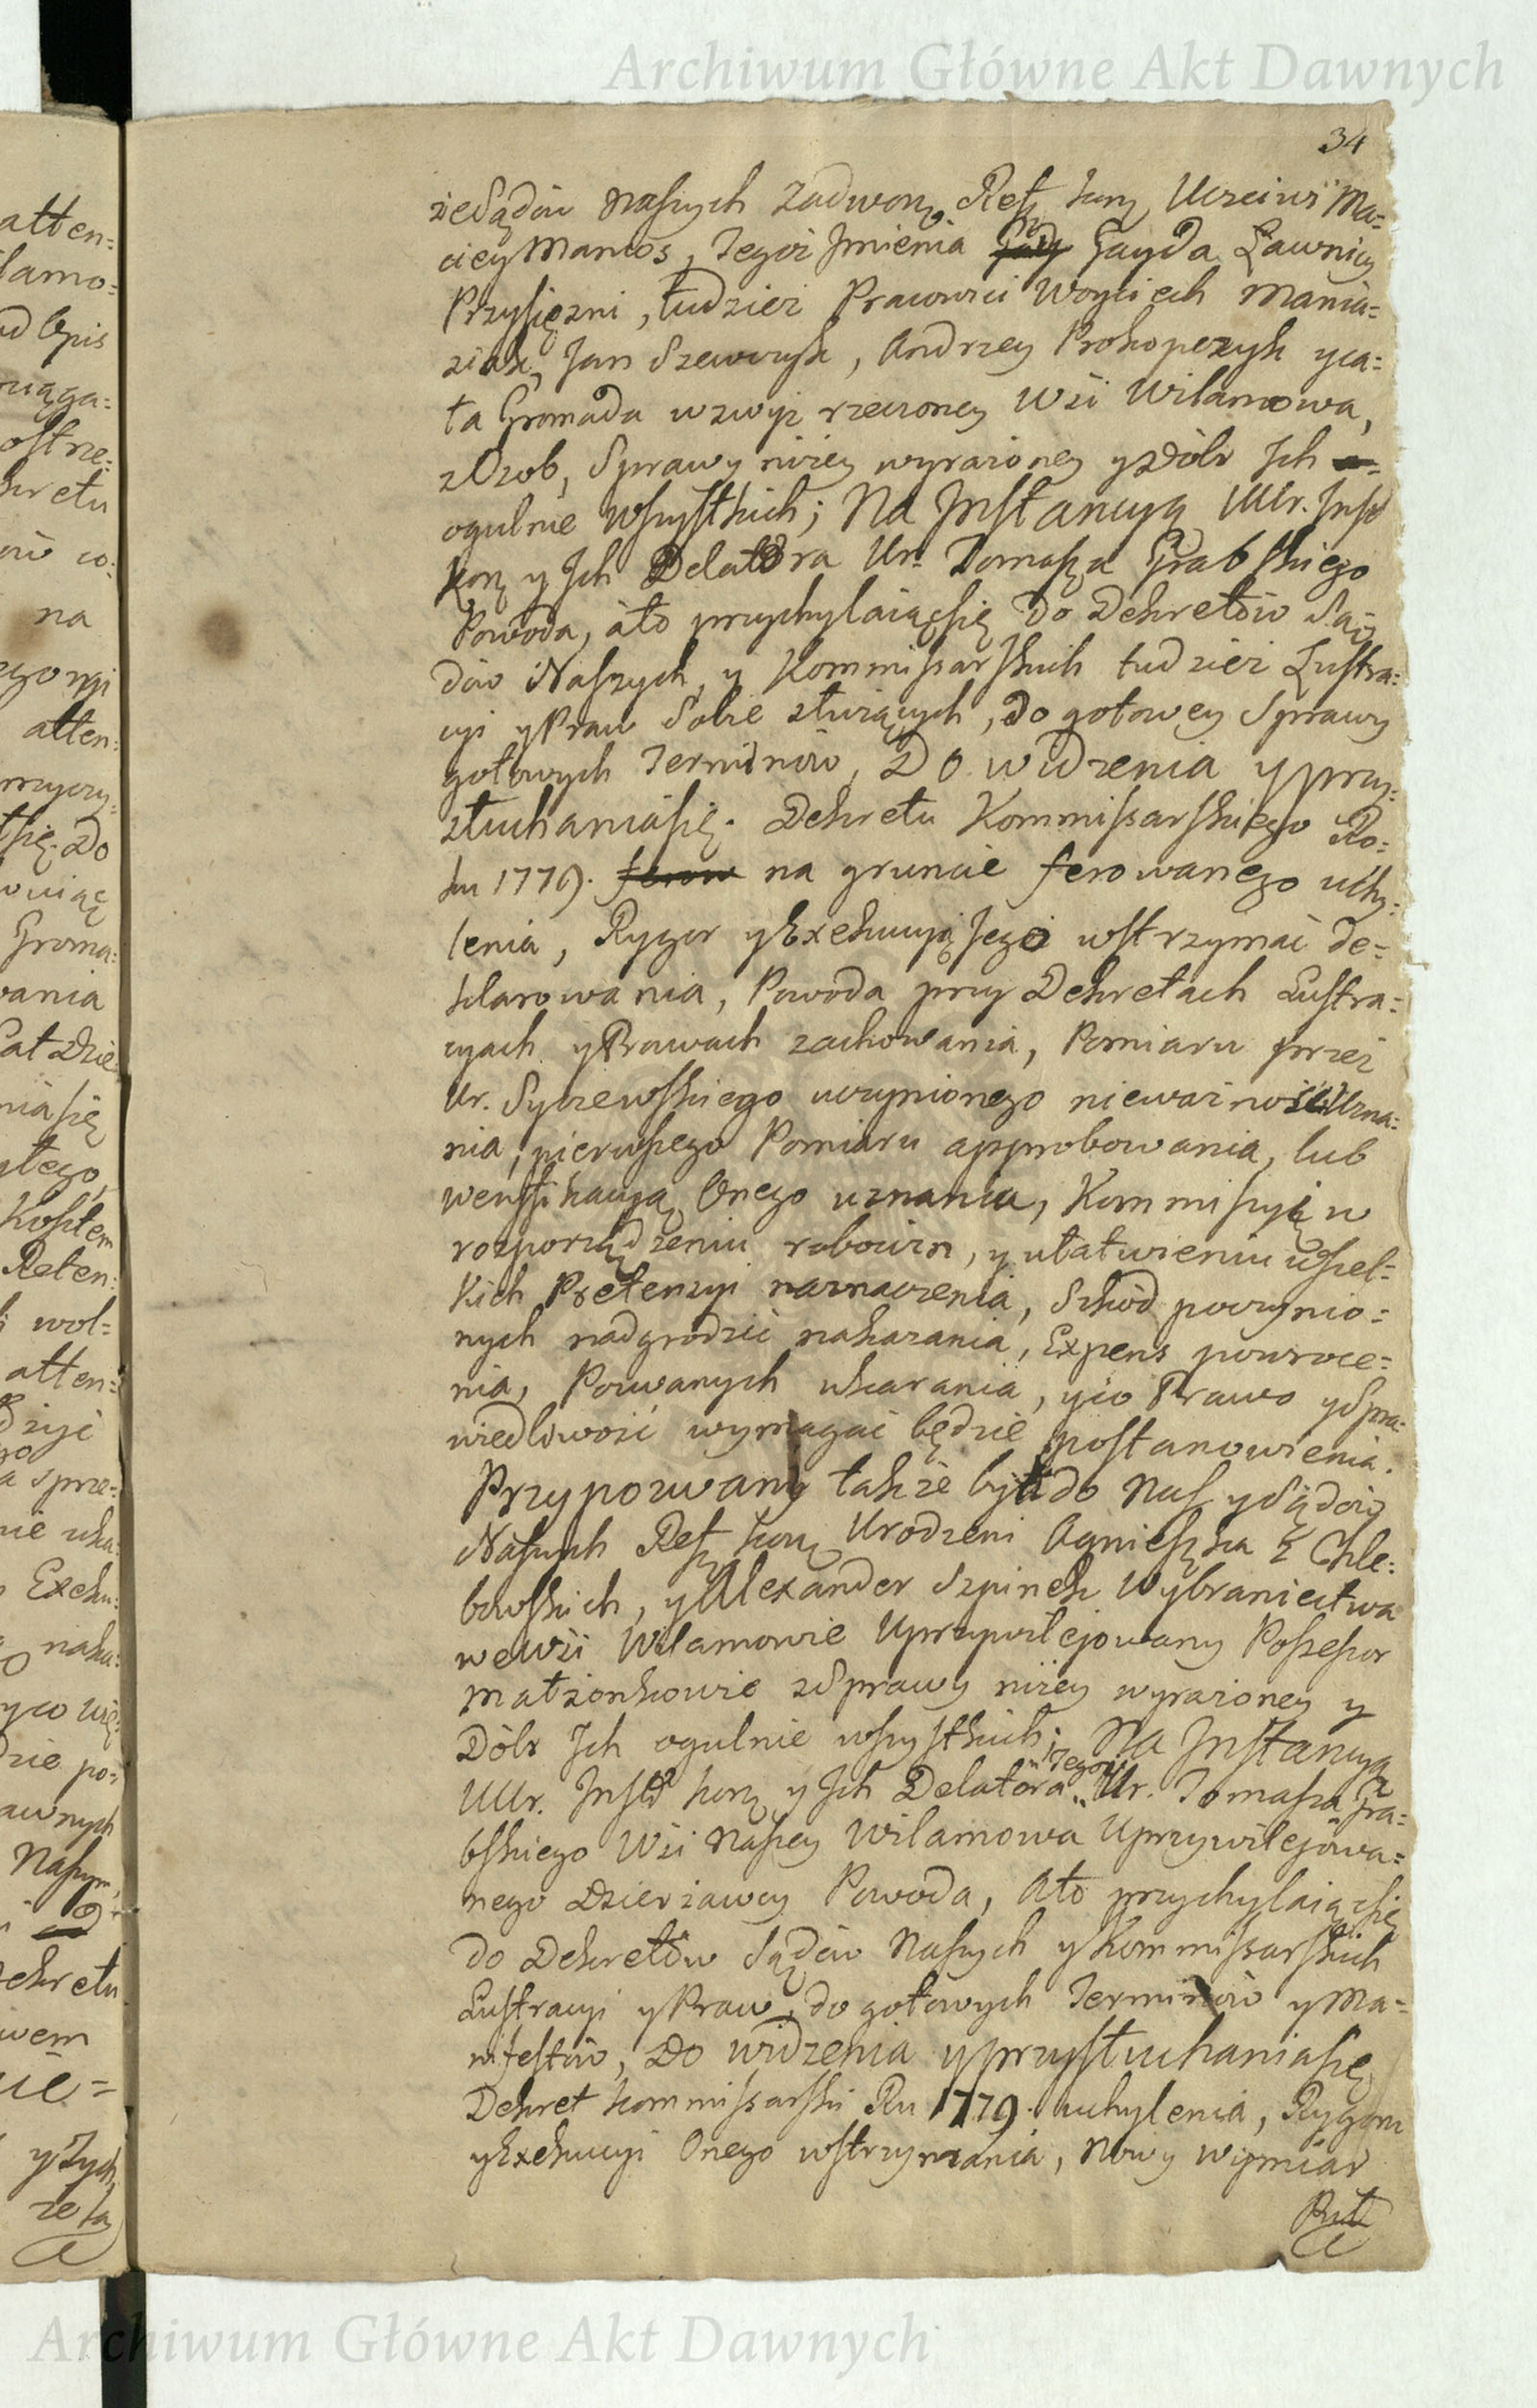 Archiwum Główne Akt Dawnych
34
że Sądów Naszych Zadworn. Ref. kor. Uczciwi Ma=
ciey Manios, Tegoż Jmienia Gayda Ławnicy
Przysięzni, tudzież Pracowici Woyciech Mania=
ziak, Jan Szewczyk, Andrzey Prokopczyk y ca=
ła Gromada wzwyż rzeczoney Wsi Wilamowa,
z Osob, Sprawy niżey wyrażoney y Dóbr Jch
ogulnie wszystkich; Na Jnstancyą UUr. Jnst
kor. y Jch Delatora Ur. Tomasza Grabskiego
Powoda, a to przychylaiąc się do Dekretów Są=
dów Naszych, y Kommissarskich tudzież Lustra=
cyi y Praw Sobie służących, do gotowey Sprawy
gotowych Terminów, Do widzenia y przy=
słuchania się. Dekretu Kommissarskiego Ro=
ku 1779. ferow na gruncie ferowanego uchy=
lenia, Rygor y Exekucyią Jego wstrzymać de=
klarowania, Powoda przy Dekretach Lustra=
cyach y Prawach zachowania, Pomiaru przez
Ur. Syczewskiego uczynionego nieważności Uzna=
nia, pierwszego Pomiaru approbowania, lub
weryfikacyą Onego uznania, Kommisyię w
rozporządzeniu robocizn, y ułatwieniu wszel=
kich Pretensyi naznaczenia, Szkód poczynio=
nych nadgrodzić nakazania, Expens powroce=
nia, Pozwanych ukarania, y co Prawo y Spra=
wiedliwość wymagać będzie postanowienia.
Przypozwani także byli do Nas y Sądów
Naszych Ref. kor. Urodzeni Agnieszka z Chle=
bowskich, y Alexander Szpinek Wybraniectwa
we Wsi Wilamowie Uprzywilejowany Possessor
małżonkowie z Sprawy niżey wyrażoney y
Dóbr Jch ogulnie wszystkich; Na Jnstancyą
UUr. Jnst kor. y Jch Delatora Tegoż Ur. Tomasza Gra=
bskiego Wsi Naszey Wilamowa Uprzywilejowa=
nego Dzierżawcy Powoda, A to przychylaiąc się
do Dekretów Sądów Naszych y Kommissarskich
Lustracyi y Praw, do gotowych Terminów y Ma=
nifestów, Do widzenia y przysłuchania się
Dekret Kommissarski Ru 1779. uchylenia, Rygoru
y Exekucyi Onego wstrzymania, Nowy wymiar
Archiwum Główne Akt Dawnych